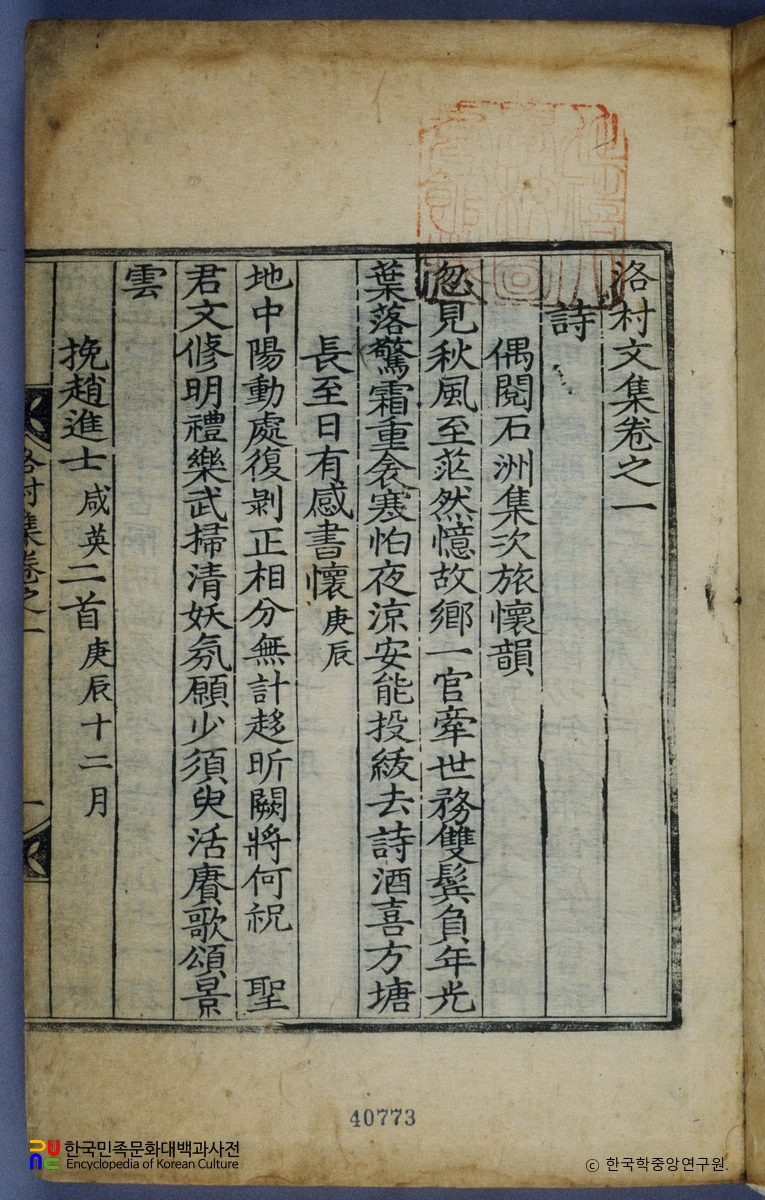 洛村文集卷之一
詩
偶閱石洲集次旅懷韻
忽見秋風至茫然憶故鄉一官牽世務雙鬂負年光
葉落驚霜重衾寒怕夜凉安能投紱去詩酒喜方塘
長至日有感書懷 庚辰
地中陽動處復剝正相分無計趍昕闕將何祝 聖
君文修明禮樂武掃清妖氛願少須臾活賡歌頌景
雲
挽趙進士 咸英 二首 庚辰十二月
洛村集卷之一
一
40773
한국민족문화대백과사전
Encyclopedia of Korean Culture
ⓒ 한국학중앙연구원.